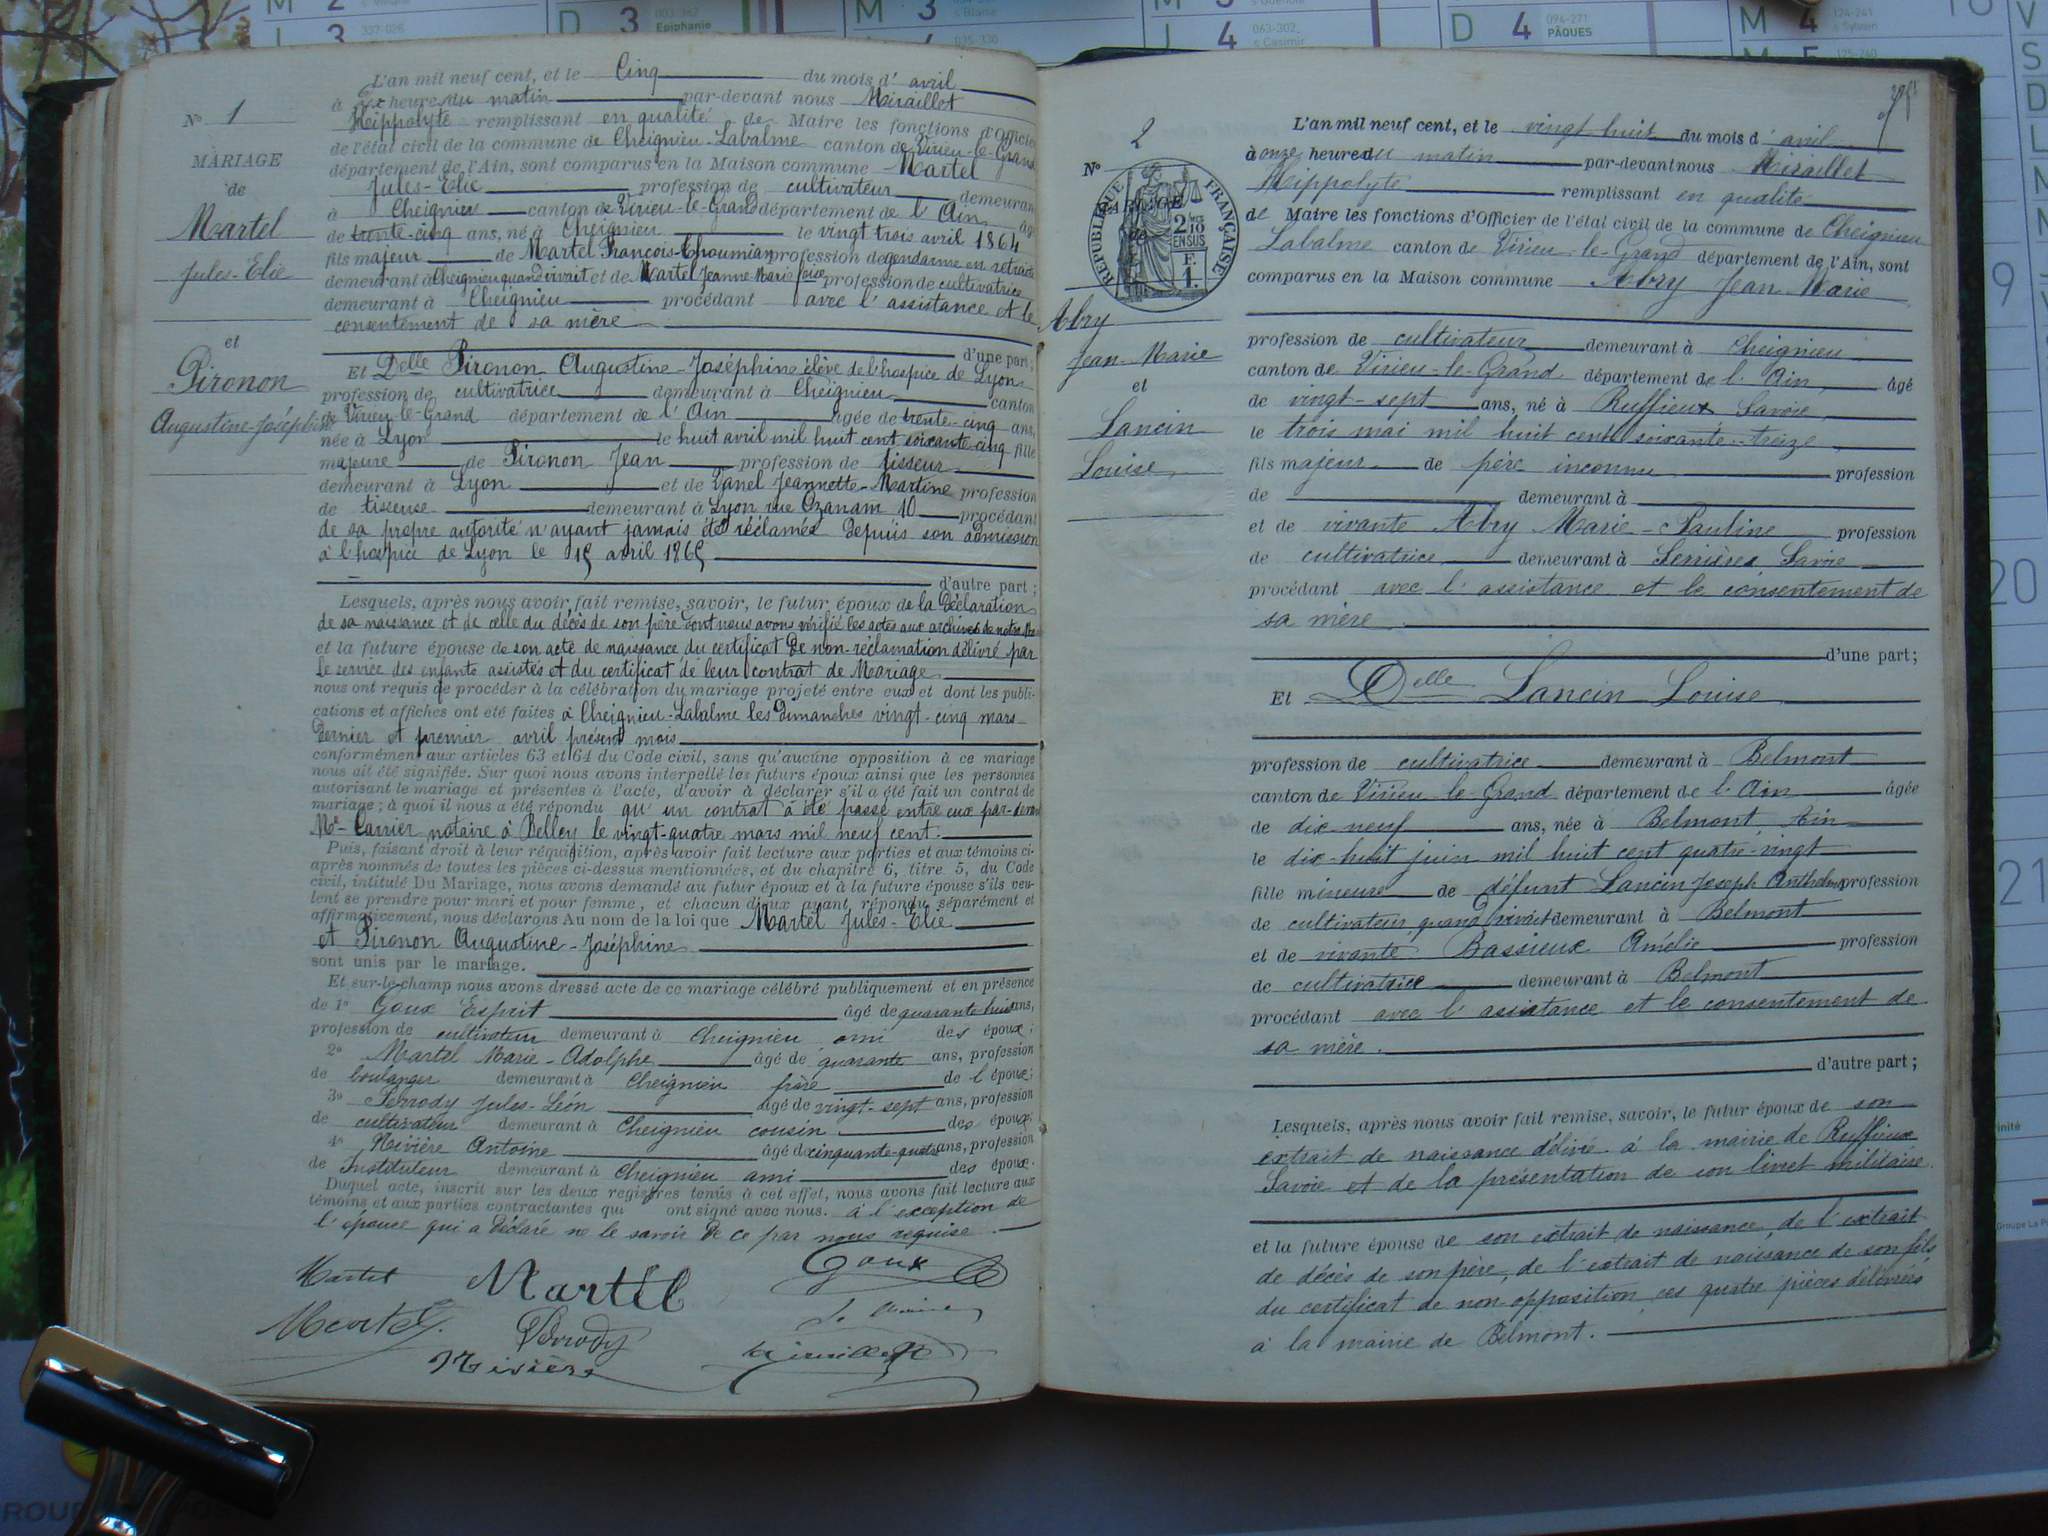 N° 1
MARIAGE
de
Martel
Jules-Elie
et
Pironon
Augustine-Joséphine
L'an mil neuf cent, et le Cinq du mois d' avril
à heure du matin par-devant nous Miraillet
Hippolyte remplissant en qualité de Maire les fonctions d'Officier
de l'état civil de la commune de Cheignieu-Labalme canton de Virieu-le-Grand
département de l'Ain, sont comparus en la Maison commune Martel
Jules-Elie profession de cultivateur demeurant
à Cheignieu canton de Virieu-le-Grand département de l'Ain âgé
de trente-cinq ans, né à Cheignieu le vingt trois avril 1864
fils majeur de Martel François-Choumian profession de gendarme en retraite
demeurant à Cheignieu quand vivait et de Martel Jeanne-Marie profession de cultivatrice
demeurant à Cheignieu procédant avec l'assistance et le
consentement de sa mère
d'une part;
Et Delle Pironon Augustine-Joséphine élève de l'hospice de Lyon
profession de cultivatrice demeurant à Cheignieu canton
de Virieu-le-Grand département de l'Ain âgée de trente-cinq ans,
née à Lyon le huit avril mil huit cent soixante-cinq fille
majeure de Pironon Jean profession de tisseur
demeurant à Lyon et de Vanel Jeannette-Martine profession
de tisseuse demeurant à Lyon rue Ozanam 10 procédant
de sa propre autorité n'ayant jamais été réclamée depuis son admission
à l'hospice de Lyon le 15 avril 1865
d'autre part;
Lesquels, après nous avoir fait remise, savoir, le futur époux de la Déclaration
de sa naissance et de celle du décès de son père dont nous avons vérifié les actes aux archives de notre
et la future épouse de son acte de naissance du certificat de non-réclamation délivré par
le service des enfants assistés et du certificat de leur contrat de Mariage
nous ont requis de procéder à la célébration du mariage projeté entre eux et dont les publi-
cations et affiches ont été faites à Cheignieu-Labalme les dimanches vingt-cinq mars
dernier et premier avril présent mois
conformément aux articles 63 et 64 du Code civil, sans qu'aucune opposition à ce mariage
nous ait été signifiée. Sur quoi nous avons interpellé les futurs époux ainsi que les personnes
autorisant le mariage et présentes à l'acte, d'avoir à déclarer s'il a été fait un contrat de
mariage; à quoi il nous a été répondu qu'un contrat à été passé entre eux par-devant
Me Carrier notaire à Belley le vingt-quatre mars mil neuf cent.
Puis, faisant droit à leur réquisition, après avoir fait lecture aux parties et aux témoins ci-
après nommés de toutes les pièces ci-dessus mentionnées, et du chapitre 6, titre 5, du Code
civil, intitulé Du Mariage, nous avons demandé au futur époux et à la future épouse s'ils veu-
lent se prendre pour mari et pour femme, et chacun d'eux ayant répondu séparément et
affirmativement, nous déclarons Au nom de la loi que Martel Jules-Elie
et Pironon Augustine-Joséphine
sont unis par le mariage.
Et sur-le-champ nous avons dressé acte de ce mariage célébré publiquement et en présence
de 1° Goux Esprit âgé de quarante huit ans,
profession de cultivateur demeurant à Cheignieu ami des époux;
2° Martel Marie-Adolphe âgé de quarante ans, profession
de boulanger demeurant à Cheignieu frère de l'époux;
3° Serrody Jules-Léon âgé de vingt-sept ans, profession
de cultivateur demeurant à Cheignieu cousin des époux;
4° Rivière Antoine âgé de cinquante-quatre ans, profession
de Instituteur demeurant à Cheignieu ami des époux.
Duquel acte, inscrit sur les deux registres tenus à cet effet, nous avons fait lecture aux
témoins et aux parties contractantes qui ont signé avec nous. à l'exception de
l'épouse qui a déclaré ne le savoir de ce par nous requise
Martel Martel Goux
Martel Serrody
Rivière Miraillet
N° 2
RÉPUBLIQUE FRANÇAISE
MARIAGE
de
2/10
EN SUS
F.
1.
Abry
Jean-Marie
et
Lancin
Louise
L'an mil neuf cent, et le vingt huit du mois d'avril
à onze heure du matin par-devant nous Miraillet
Hippolyte remplissant en qualité
de Maire les fonctions d'Officier de l'état civil de la commune de Cheignieu
Labalme canton de Virieu-le-Grand département de l'Ain, sont
comparus en la Maison commune Abry Jean Marie
profession de cultivateur demeurant à Cheignieu
canton de Virieu-le-Grand département de l'Ain, âgé
de vingt-sept ans, né à Ruffieux Savoie
le trois mai mil huit cent soixante-treize
fils majeur de père inconnu profession
de demeurant à
et de vivante Abry Marie-Pauline profession
de cultivatrice demeurant à Serrières Savoie
procédant avec l'assistance et le consentement de
sa mère
d'une part;
Et Delle Lancin Louise
profession de cultivatrice demeurant à Belmont
canton de Virieu-le-Grand département de l'Ain âgée
de dix neuf ans, née à Belmont, Ain
le dix-huit juin mil huit cent quatre-vingt
fille mineure de défunt Lancin Joseph Anthelme profession
de cultivateur quand vivait demeurant à Belmont
et de vivante Bassieux Amélie profession
de cultivatrice demeurant à Belmont
procédant avec l'assistance et le consentement de
sa mère.
d'autre part;
Lesquels, après nous avoir fait remise, savoir, le futur époux de son
extrait de naissance délivré à la mairie de Ruffieux
Savoie et de la présentation de son livret militaire.
et la future épouse de son extrait de naissance, de l'extrait
de décès de son père, de l'extrait de naissance de son fils,
du certificat de non-opposition, ces quatre pièces délivrées
à la mairie de Belmont.
D 3 Epiphanie
M 3 s Blaise
L 4 063-302 s Casimir
D 4 094-271 PÂQUES
M 4 124-241 s Sylvain
L 3 337-026
9
20
21